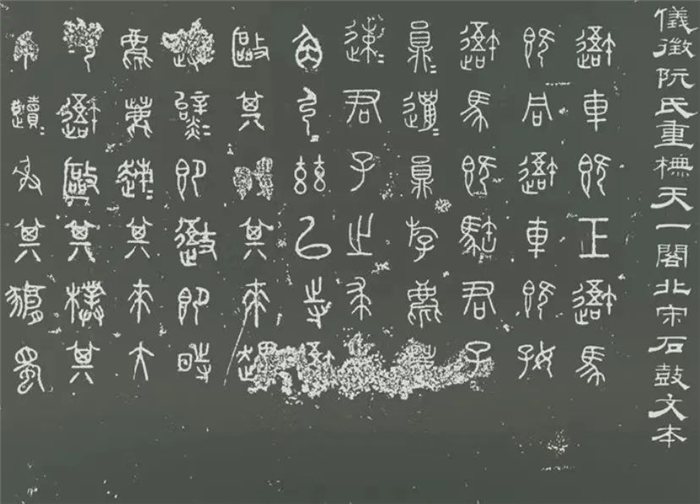 儀徵阮氏重橅天一閣北宋石鼓文本
吾車既工吾馬
既同吾車既好
吾馬既駐君子
員邋員斿麀
速君子之求
角弓茲以寺
毆其其來趩
即吾即時
麀鹿趚其來大
吾毆其樸其
射其豜蜀